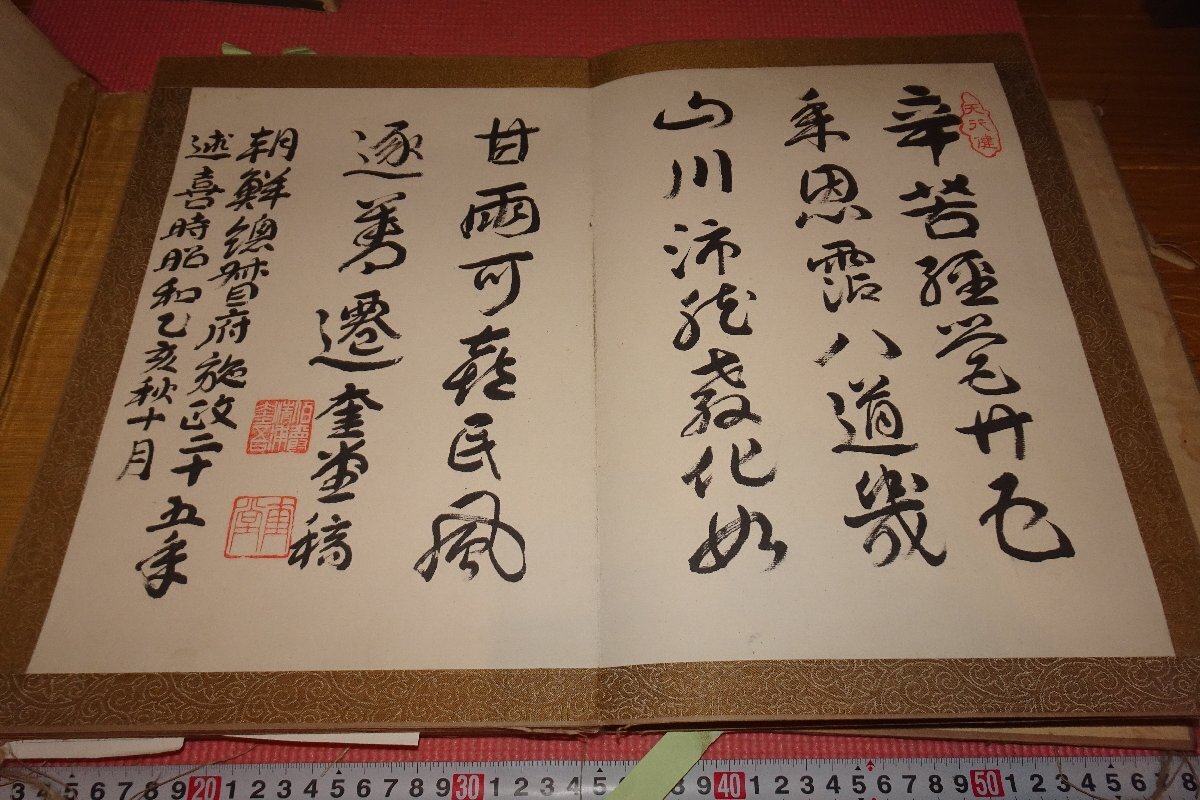 天行健
辛苦經營廿五
年恩霑八道幾
山川沛然教化如
甘雨可喜民風
逐 遷 奎堂稿
伯爵清浦奎吾
奎堂
朝鮮總督府施政二十五年
述喜時昭和乙亥秋十月
3 4 5 6 7 8 9 20 1 2 3 4 5 6 7 8 9 30 1 2 3 4 5 6 7 8 9 40 1 2 3 4 5 6 7 8 9 50 1 2 3 4 5 6 7 8